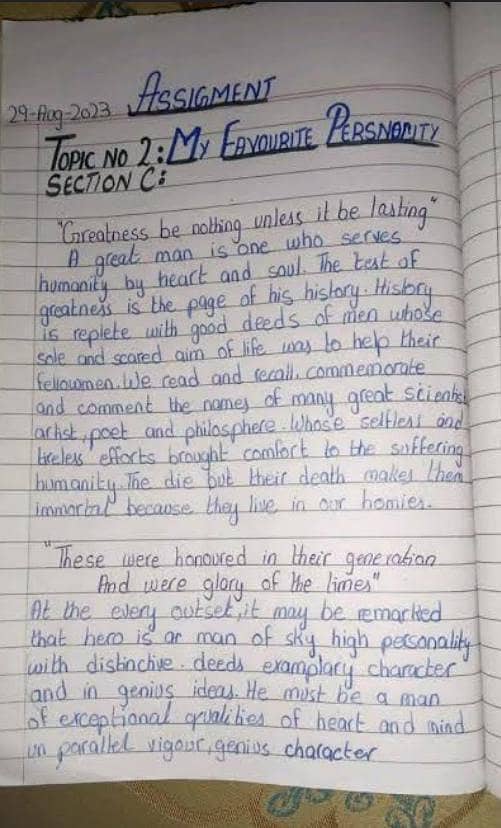 ASSIGMENT
29-Aug-2023
TOPIC NO 2: MY FAVOURITE PERSNALITY
SECTION C:
"Greatness be nothing unless it be lasting"
A great man is one who serves
humanity by heart and soul. The test of
greatness is the page of his history. History
is replete with good deeds of men whose
sole and scared aim of life was to help their
fellowmen. We read and recall, commemorate
and comment the names of many great scientist
artist, poet and philosphere. Whose selfless and
tireless efforts brought comfort to the suffering
humanity. The die but their death makes them
immortal because they live in our homies.
"These were honoured in their generation
And were glory of the times"
At the every outset, it may be remarked
that hero is ar man of sky high personality
with distinctive. deeds examplary character
and in genius ideas. He must be a man
of exceptional qualities of heart and mind
un parallel vigour, genius character